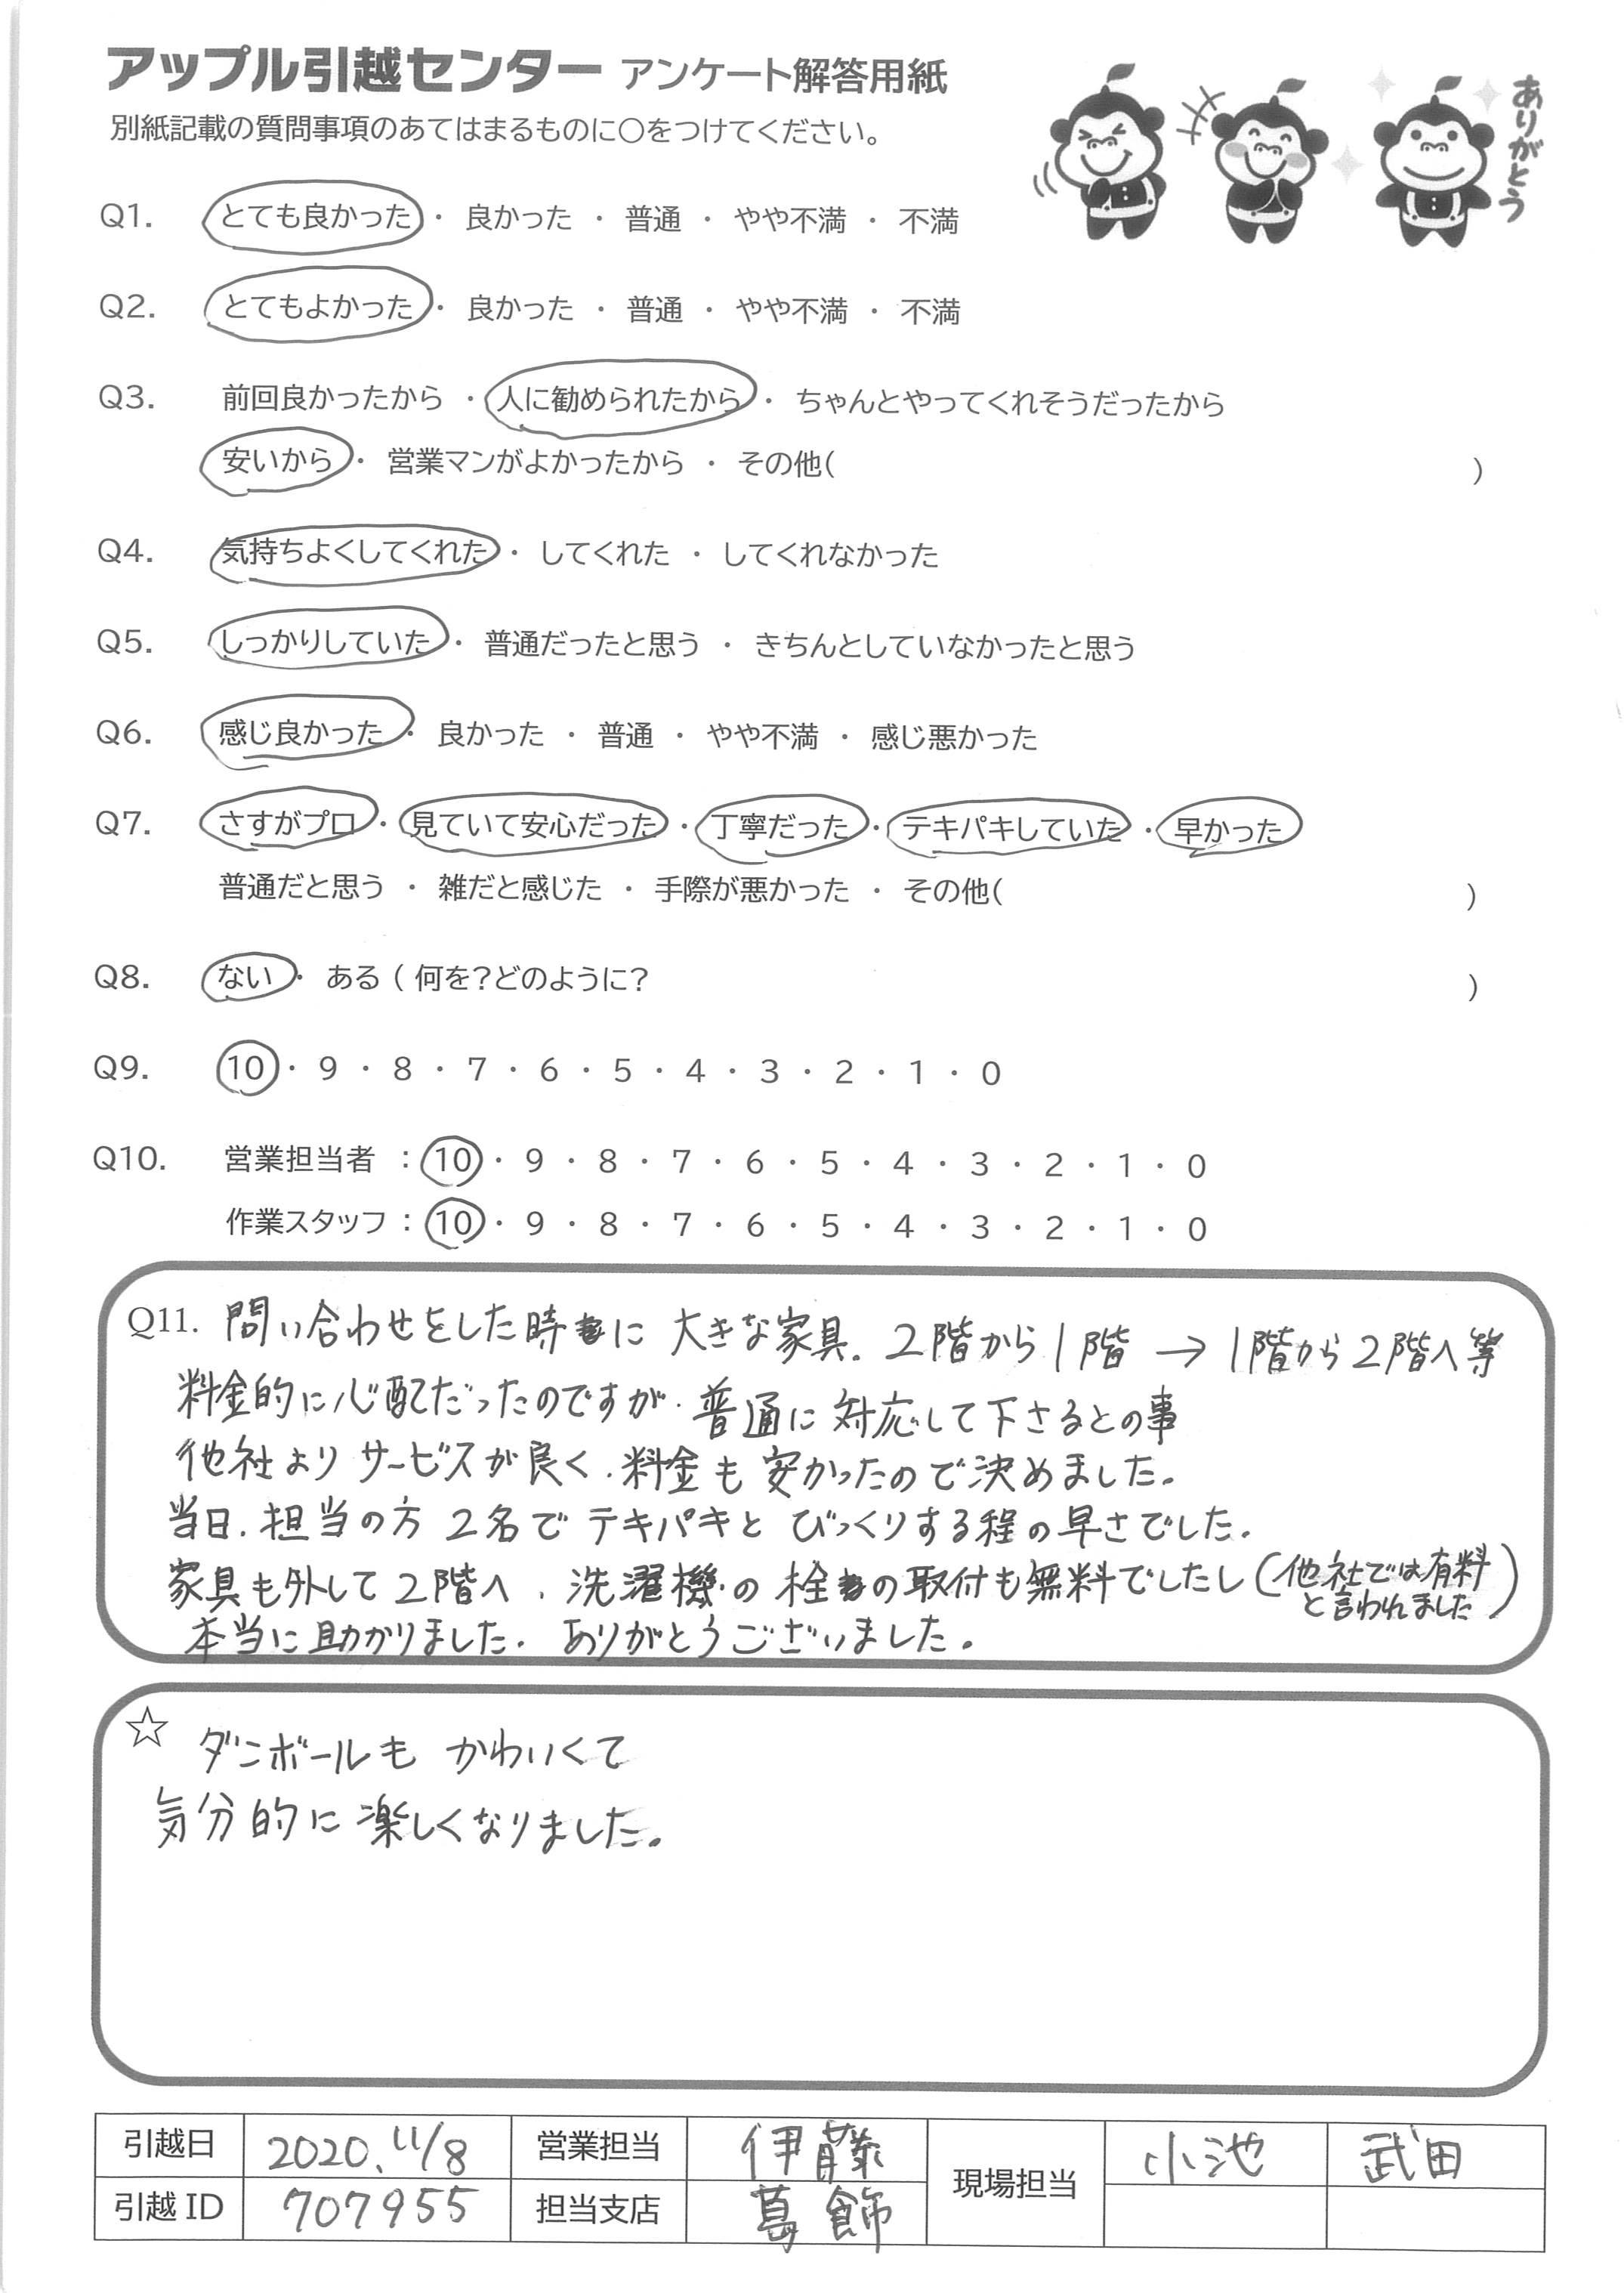 アップル引越センター アンケート解答用紙
別紙記載の質問事項のあてはまるものに○をつけてください。
ありがとう
Q1. とても良かった ・ 良かった ・ 普通 ・ やや不満 ・ 不満
Q2. とてもよかった ・ 良かった ・ 普通 ・ やや不満 ・ 不満
Q3. 前回良かったから ・ 人に勧められたから ・ ちゃんとやってくれそうだったから
安いから ・ 営業マンがよかったから ・ その他( )
Q4. 気持ちよくしてくれた ・ してくれた ・ してくれなかった
Q5. しっかりしていた ・ 普通だったと思う ・ きちんとしていなかったと思う
Q6. 感じ良かった ・ 良かった ・ 普通 ・ やや不満 ・ 感じ悪かった
Q7. さすがプロ ・ 見ていて安心だった ・ 丁寧だった ・ テキパキしていた ・ 早かった
普通だと思う ・ 雑だと感じた ・ 手際が悪かった ・ その他( )
Q8. ない ・ ある ( 何を?どのように? )
Q9. 10 ・ 9 ・ 8 ・ 7 ・ 6 ・ 5 ・ 4 ・ 3 ・ 2 ・ 1 ・ 0
Q10. 営業担当者 : 10 ・ 9 ・ 8 ・ 7 ・ 6 ・ 5 ・ 4 ・ 3 ・ 2 ・ 1 ・ 0
作業スタッフ : 10 ・ 9 ・ 8 ・ 7 ・ 6 ・ 5 ・ 4 ・ 3 ・ 2 ・ 1 ・ 0
Q11. 問い合わせをした時に 大きな家具、2階から1階 → 1階から2階へ等
料金的に心配だったのですが、普通に対応して下さるとの事
他社より サービスが良く、料金も安かったので決めました。
当日、担当の方 2名で テキパキと びっくりする程の早さでした。
家具も外して2階へ、洗濯機の栓の取付も無料でしたし(他社では有料
と言われました)
本当に助かりました。ありがとうございました。
☆ ダンボールも かわいくて
気分的に楽しくなりました。
引越日 2020.11/8 営業担当 伊藤 現場担当 小池 武田
引越ID 707955 担当支店 葛飾